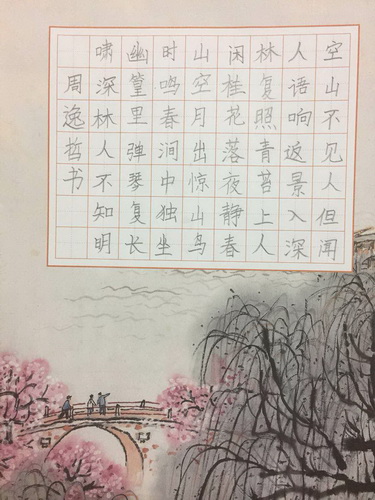 空山不见人但闻
人语响返景入深
林复照青苔上人
闲桂花落夜静春
山空月出惊山鸟
时鸣春涧中独坐
幽篁里弹琴复长
啸深林人不知明
周逸哲书